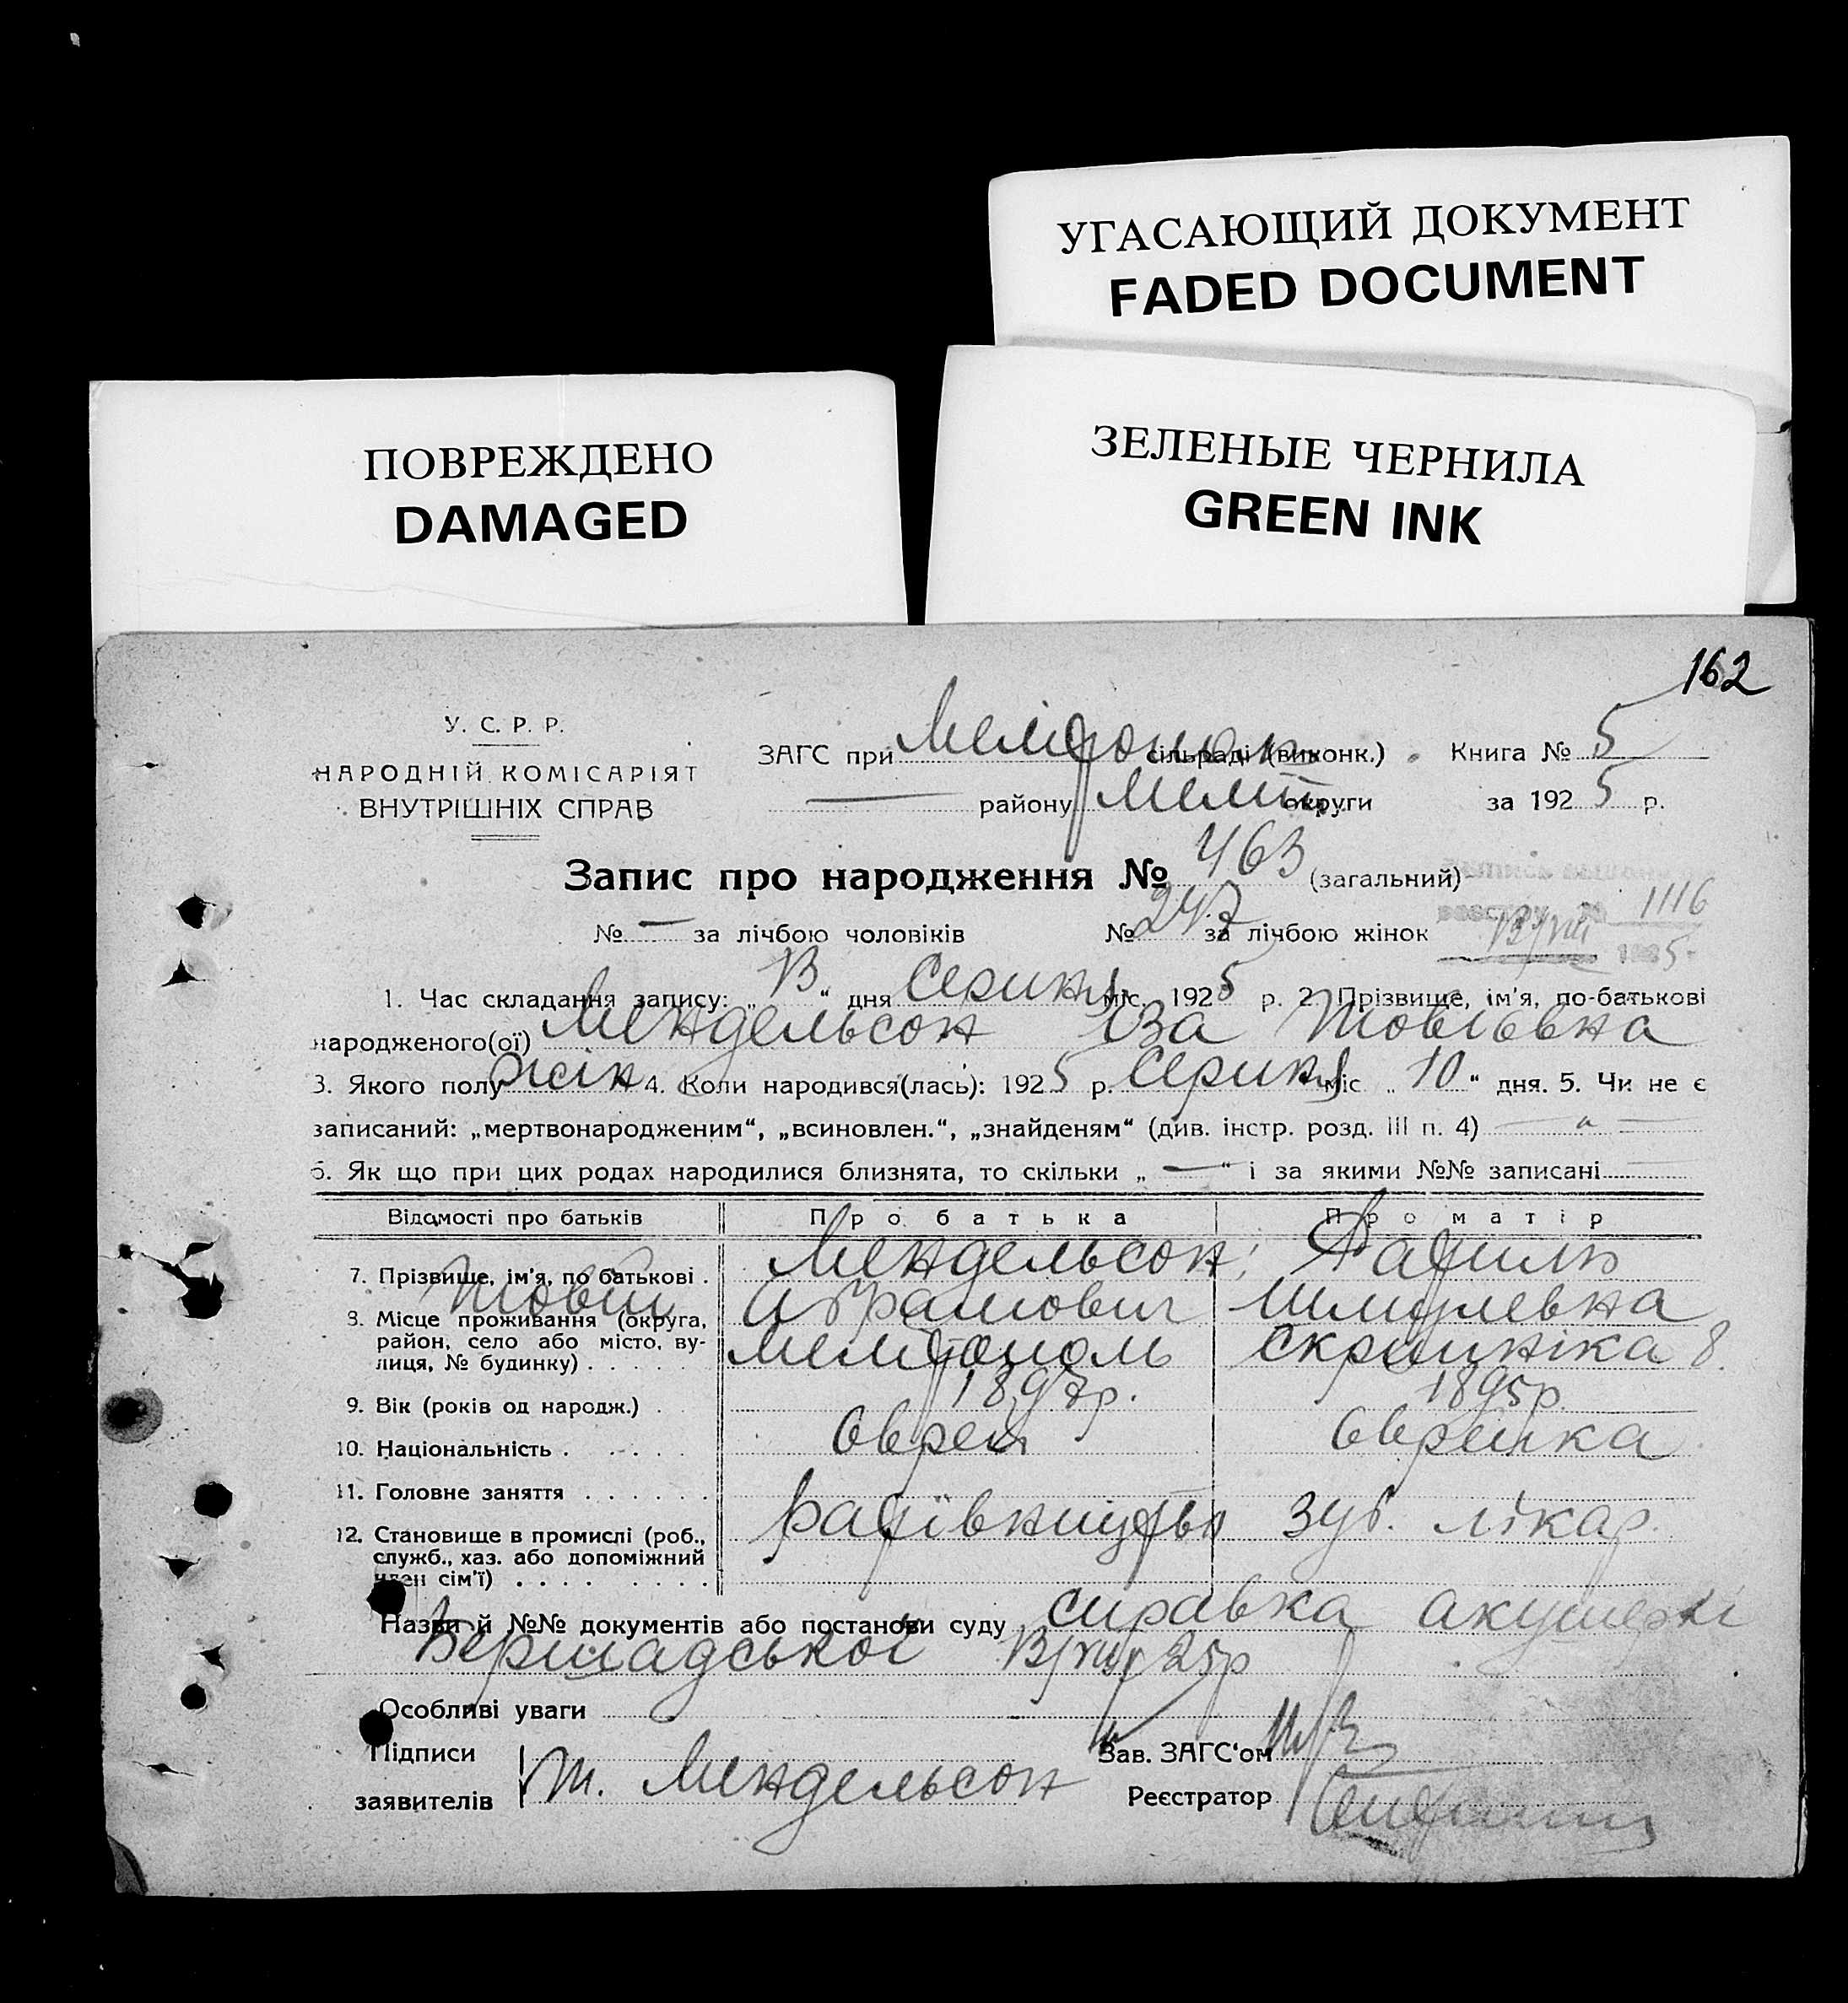 УГАСАЮЩИЙ ДОКУМЕНТ
FADED DOCUMENT
ПОВРЕЖДЕНО
DAMAGED
ЗЕЛЕНЫЕ ЧЕРНИЛА
GREEN INK
162
У. С. Р. Р.
НАРОДНІЙ КОМІСАРІЯТ
ВНУТРІШНІХ СПРАВ
ЗАГС при сільраді (виконк.) Книга № 5
— району Меліт. округи за 1925 р.
Запис про народження № 463 (загальний)
1116
№ — за лічбою чоловіків № 247 за лічбою жінок
1. Час складання запису: „13“ дня Серпня міс. 1925 р. 2. Прізвище, ім'я, по-батькові
народженого(ої) Мендельсон Іза Товіївна
3. Якого полу жін 4. Коли народився(лась): 1925 р. Серпня міс „10“ дня. 5. Чи не є
записаний: „мертвонародженим“, „всиновлен.“, „знайденям“ (див. інстр. розд. III п. 4) —
6. Як що при цих родах народилися близнята, то скільки „—“ і за якими №№ записані
Відомості про батьків Про батька Про матір
7. Прізвище, ім'я, по батькові . Мендельсон; Рахиль
Товій Абрамович Шмулевна
8. Місце проживання (округа,
район, село або місто, вулиця, № будинку) . . . . . Мелітополь Скрипніка 8.
9. Вік (років од народж.) . 1897р. 1895р.
10. Національність . . . . Єврей Єврейка
11. Головне заняття . . . . . .
12. Становище в промислі (роб., рахівництво Зуб. лікар.
служб., хаз. або допоміжний
член сім'ї) . . . . . . . .
Назви й №№ документів або постанови суду справка акушерки
Бершадської 13/VIII 25р
Особливі уваги
Підписи
заявителів Т. Мендельсон
Зав. ЗАГС'ом
Реєстратор